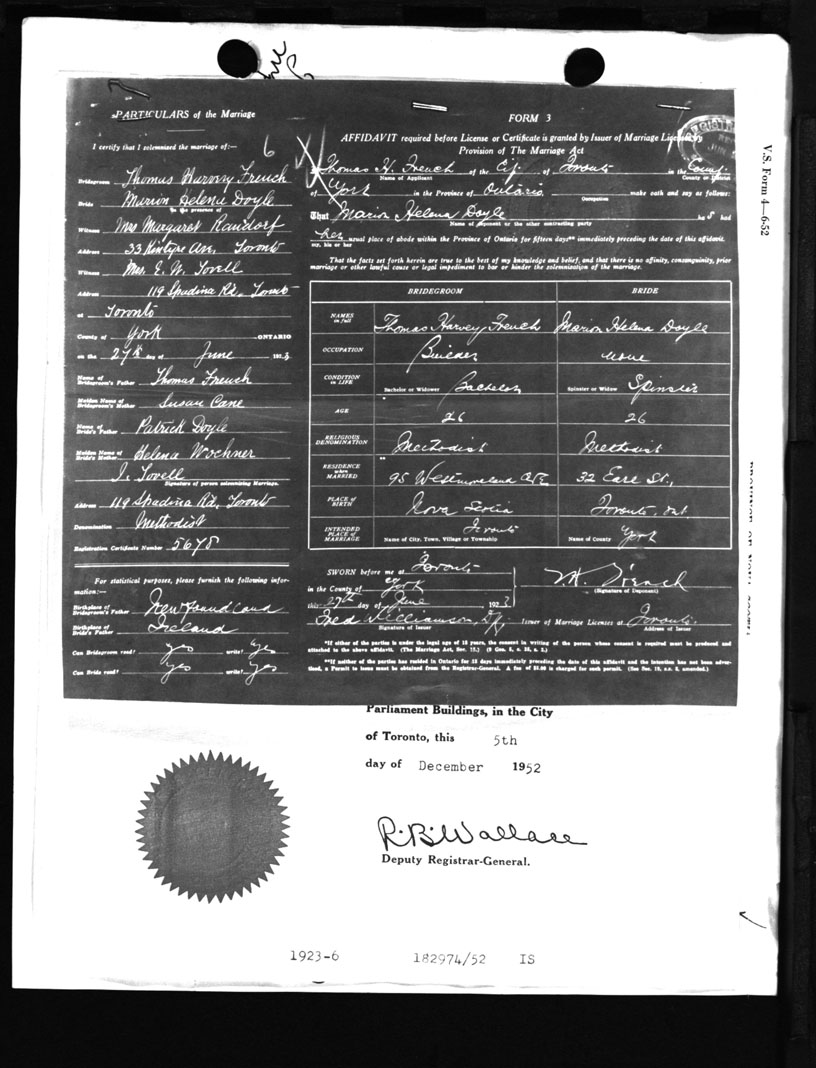 PARTICULARS of the Marriage
I certify that I solemnized the marriage of:—
6
Bridegroom Thomas Harvey French
Bride Marion Helena Doyle
In the presence of
Witness Mrs Margaret
Address 33 Kintyre Av., Toronto
Witness Mrs. E. W. Tovell
Address 119 Spadina Rd., Toronto
at Toronto
County of York ONTARIO
on the 27th day of June 1923
Name of Bridegroom's Father Thomas French
Maiden Name of Bridegroom's Mother Susan Cane
Name of Bride's Father Patrick Doyle
Maiden Name of Bride's Mother Helena Wochner
I. Tovell
Signature of person solemnizing Marriage.
Address 119 Spadina Rd, Toronto
Denomination Methodist
Registration Certificate Number 5678
For statistical purposes, please furnish the following infor-
mation:—
Birthplace of Bridegroom's Father Newfoundland
Birthplace of Bride's Father Ireland
Can Bridegroom read? yes write? yes
Can Bride read? yes write? yes
FORM 3
AFFIDAVIT required before License or Certificate is granted by Issuer of Marriage Licenses by
Provision of The Marriage Act
Thomas H. French of the City of Toronto in the County
Name of Applicant County or District
of York in the Province of Ontario make oath and say as follows:
Occupation
That Marion Helena Doyle has had
Name of deponent or the other contracting party
her usual place of abode within the Province of Ontario for fifteen days** immediately preceding the date of this affidavit.
my, his or her
That the facts set forth herein are true to the best of my knowledge and belief, and that there is no affinity, consanguinity, prior
marriage or other lawful cause or legal impediment to bar or hinder the solemnization of the marriage.
BRIDEGROOM BRIDE
NAMES in full Thomas Harvey French Marion Helena Doyle
OCCUPATION Builder None
CONDITION in LIFE Bachelor or Widower Bachelor Spinster or Widow Spinster
AGE 26 26
RELIGIOUS DENOMINATION Methodist Methodist
RESIDENCE when MARRIED 95 Westmoreland Ave 32 Earl St.,
PLACE of BIRTH Nova Scotia Toronto, Ont
INTENDED PLACE of MARRIAGE Name of City, Town, Village or Township Toronto Name of County York
SWORN before me at Toronto
in the County of York
this 27th day of June 1923
T. H. French
(Signature of Deponent)
Fred Williamson, Issuer of Marriage Licenses at Toronto.
Signature of Issuer Address of Issuer
*If either of the parties is under the legal age of 18 years, the consent in writing of the person whose consent is required must be produced and
attached to the above affidavit. (The Marriage Act, Sec. 15.)
**If neither of the parties has resided in Ontario for 15 days immediately preceding the date of this affidavit and the intention has not been adver-
tised, a Permit to issue must be obtained from the Registrar-General. A fee of $5.00 is charged for such permit.
V.S. Form 4—6-52
Parliament Buildings, in the City
of Toronto, this 5th
day of December 1952
R. B. Wallace
Deputy Registrar-General.
1923-6 182974/52 IS